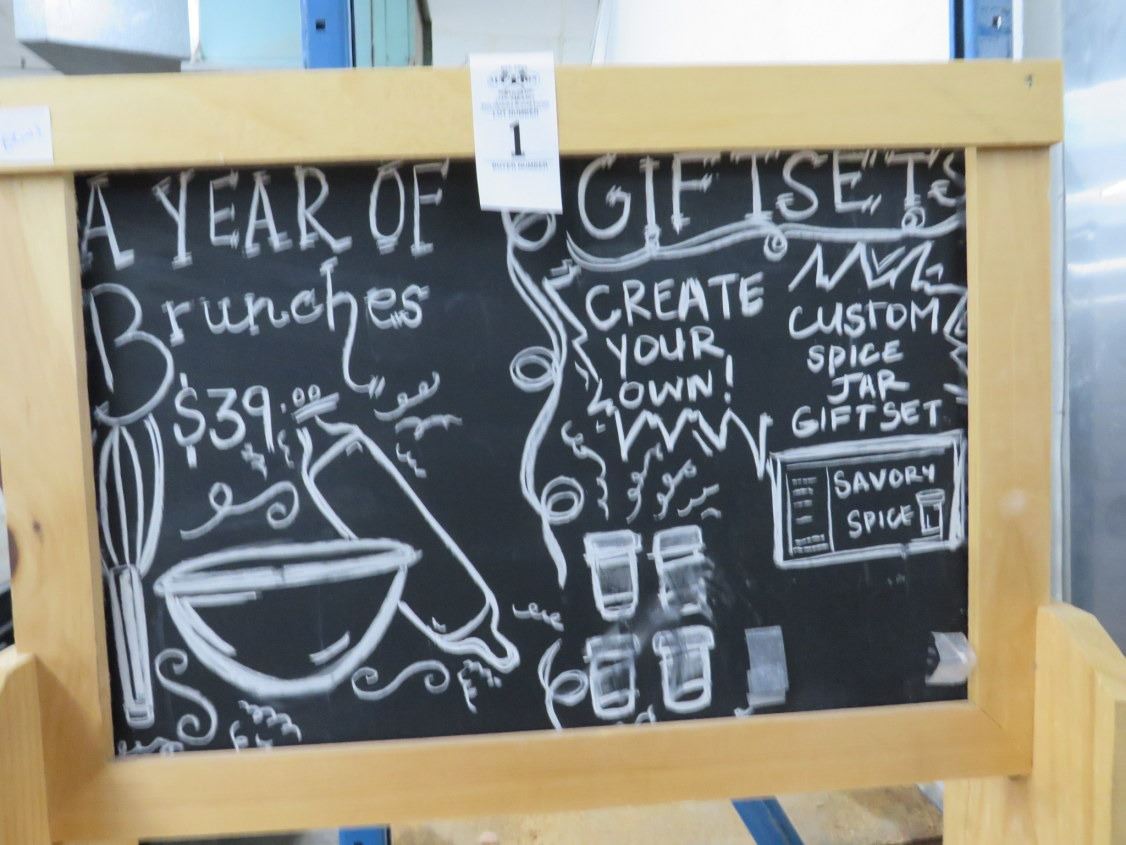 LOT NUMBER
1
BUYER NUMBER
A YEAR OF
Brunches
$39.00
GIFTSETS
CREATE
YOUR
OWN!
CUSTOM
SPICE
JAR
GIFT SET
SAVORY
SPICE